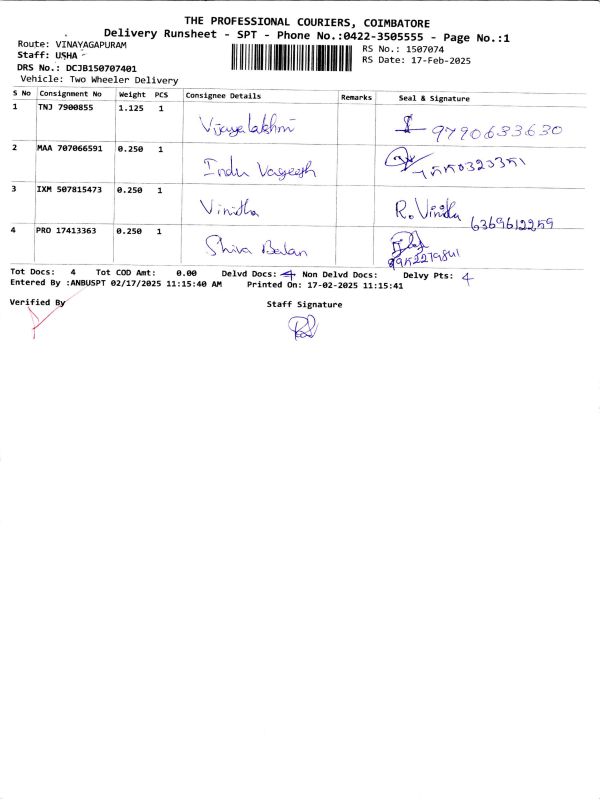 THE PROFESSIONAL COURIERS, COIMBATORE
Delivery Runsheet - SPT - Phone No.:0422-3505555 - Page No.:1
Route: VINAYAGAPURAM
RS No.: 1507074
Staff: USHA
RS Date: 17-Feb-2025
DRS No.: DCJB150707401
Vehicle: Two Wheeler Delivery
S No Consignment No Weight PCS Consignee Details Remarks Seal & Signature
1 TNJ 7900855 1.125 1
Vijayalakshmi 9790633630
2 MAA 707066591 0.250 1
Indu Vageesh
3 IXM 507815473 0.250 1
Vinitha R. Vinitha 6369612259
4 PRO 17413363 0.250 1
Shiva Balan
Tot Docs: 4 Tot COD Amt: 0.00 Delvd Docs: 4 Non Delvd Docs: Delvy Pts: 4
Entered By :ANBUSPT 02/17/2025 11:15:40 AM Printed On: 17-02-2025 11:15:41
Verified By Staff Signature